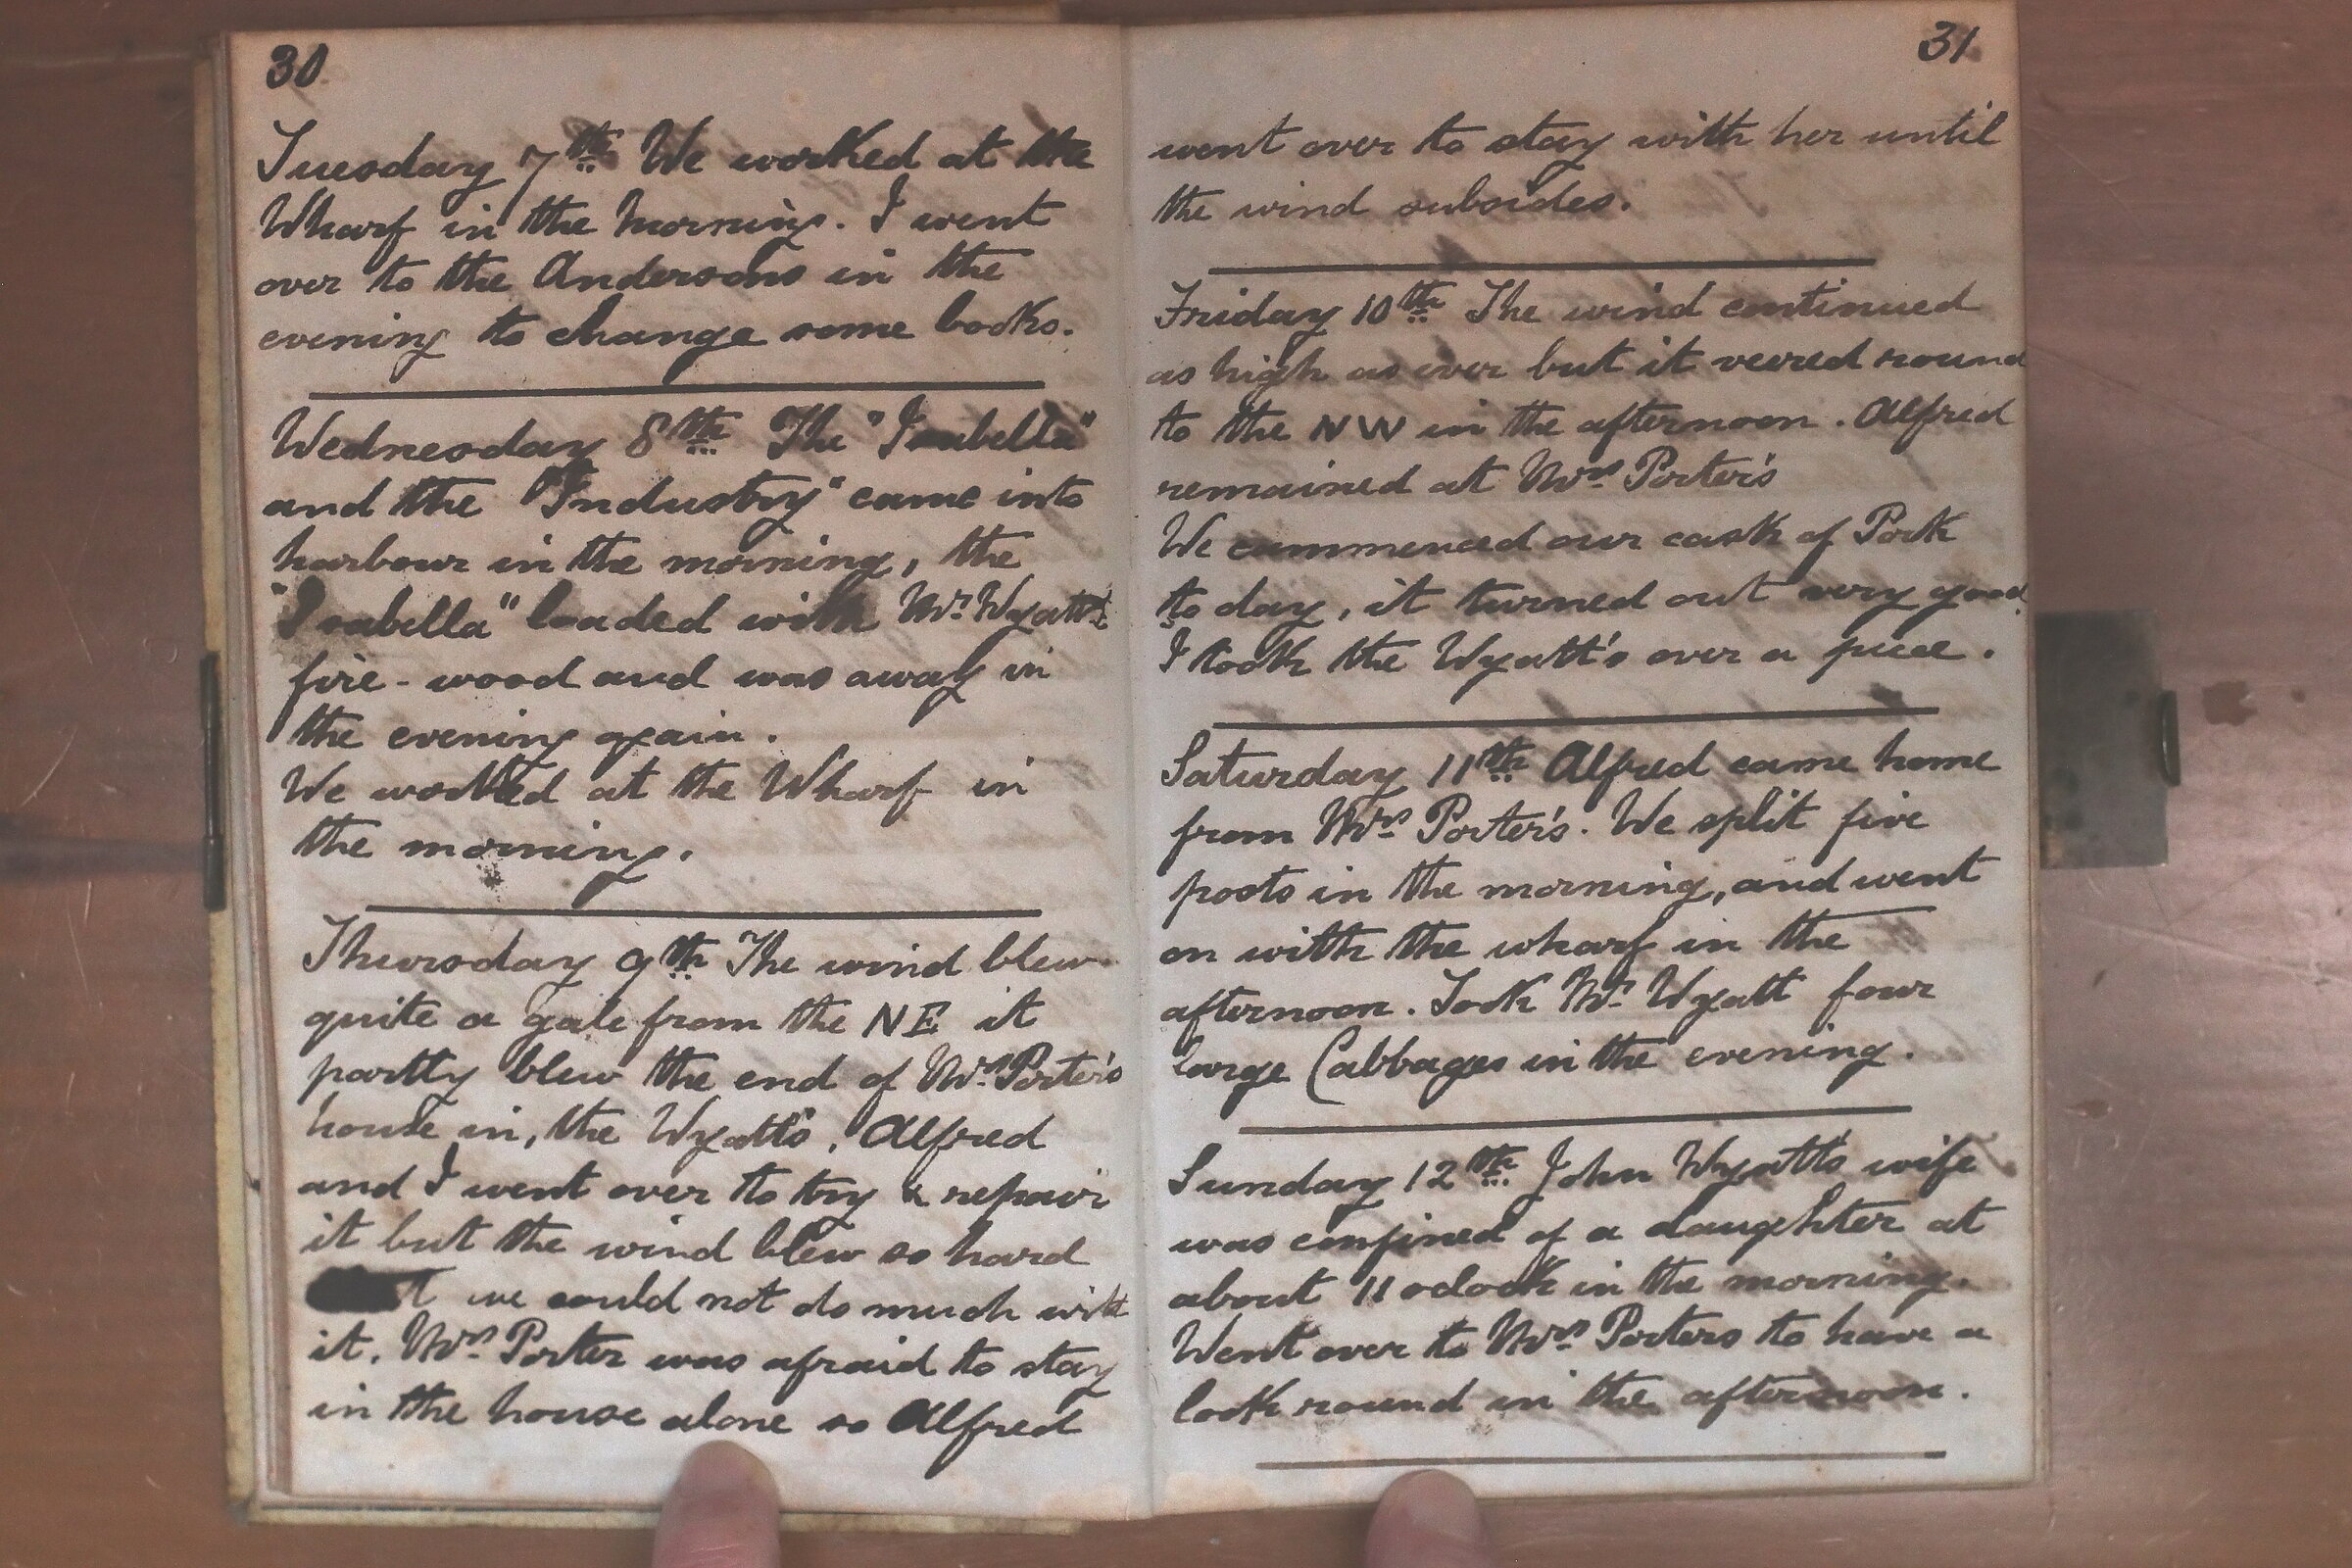 30
Tuesday 7th We worked at the
Wharf in the morning. I went
over to the Andersons in the
evening to change some books.
Wednesday 8th The "Isabella"
and the "Industry" came into
harbour in the morning, the
"Isabella" loaded with Mr. Wyatt's
fire-wood and was away in
the evening again.
We worked at the Wharf in
the morning.
Thursday 9th The wind blew
quite a gale from the NE it
partly blew the end of Mrs. Porter's
house in, the Wyatt's, Alfred
and I went over to try & repair
it but the wind blew so hard
we could not do much with
it. Mrs. Porter was afraid to stay
in the house alone so Alfred
31
went over to stay with her until
the wind subsides.
Friday 10th The wind continued
as high as ever but it veered round
to the NW in the afternoon. Alfred
remained at Mrs. Porter's
We commenced our cask of Pork
to day, it turned out very good.
I took the Wyatt's over a piece.
Saturday 11th Alfred came home
from Mrs. Porter's. We split five
posts in the morning, and went
on with the wharf in the
afternoon. Took Mr. Wyatt four
large Cabbages in the evening.
Sunday 12th John Wyatt's wife
was confined of a daughter at
about 11 oclock in the morning.
Went over to Mrs. Porters to have a
look round in the afternoon.